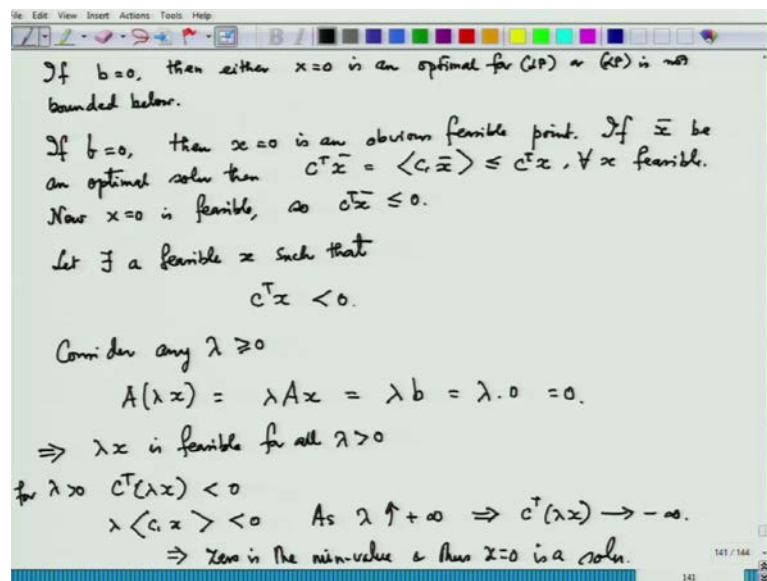 File Edit View Insert Actions Tools Help
If b=0, then either x=0 is an optimal for (LP) or (LP) is not
bounded below.
If b=0, then x=0 is an obvious feasible point. If x̄ be
an optimal soln then cᵀx̄ = <c, x̄> ≤ cᵀx, ∀ x feasible.
Now x=0 is feasible, so cᵀx̄ ≤ 0.
Let ∃ a feasible x such that
cᵀx < 0.
Consider any λ ≥ 0
A(λx) = λAx = λb = λ.0 = 0.
⇒ λx is feasible for all λ>0
for λ>0 cᵀ(λx) < 0
λ<c, x> < 0 As λ ↑ +∞ ⇒ cᵀ(λx) → -∞.
⇒ Zero is the min-value & thus x=0 is a soln.
141 / 144
141